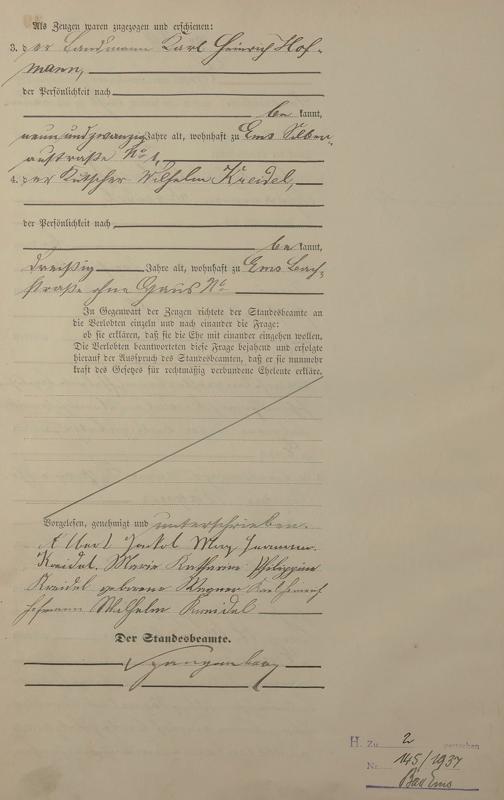 Als Zeugen waren zugezogen und erschienen:
3. der Landmann Karl Heinrich Hof-
mann,
der Persönlichkeit nach
be kannt,
neun und zwanzig Jahre alt, wohnhaft zu Ems Silber-
austraße No 1,
4. der Kutscher Wilhelm Kreidel,
der Persönlichkeit nach
be kannt,
dreißig Jahre alt, wohnhaft zu Ems Bach-
straße ohne Haus No
In Gegenwart der Zeugen richtete der Standesbeamte an
die Verlobten einzeln und nach einander die Frage:
ob sie erklären, daß sie die Ehe mit einander eingehen wollen.
Die Verlobten beantworteten diese Frage bejahend und erfolgte
hierauf der Ausspruch des Standesbeamten, daß er sie nunmehr
kraft des Gesetzes für rechtmäßig verbundene Eheleute erkläre.
Vorgelesen, genehmigt und unterschrieben.
Albert Jakob Max Hermann
Kreidel. Marie Katharine Philippine
Kreidel geborene Wagner Karl Heinrich
Hofmann Wilhelm Kreidel
Der Standesbeamte.
H. Zu 2
Nr. 145/1937
Bad Ems